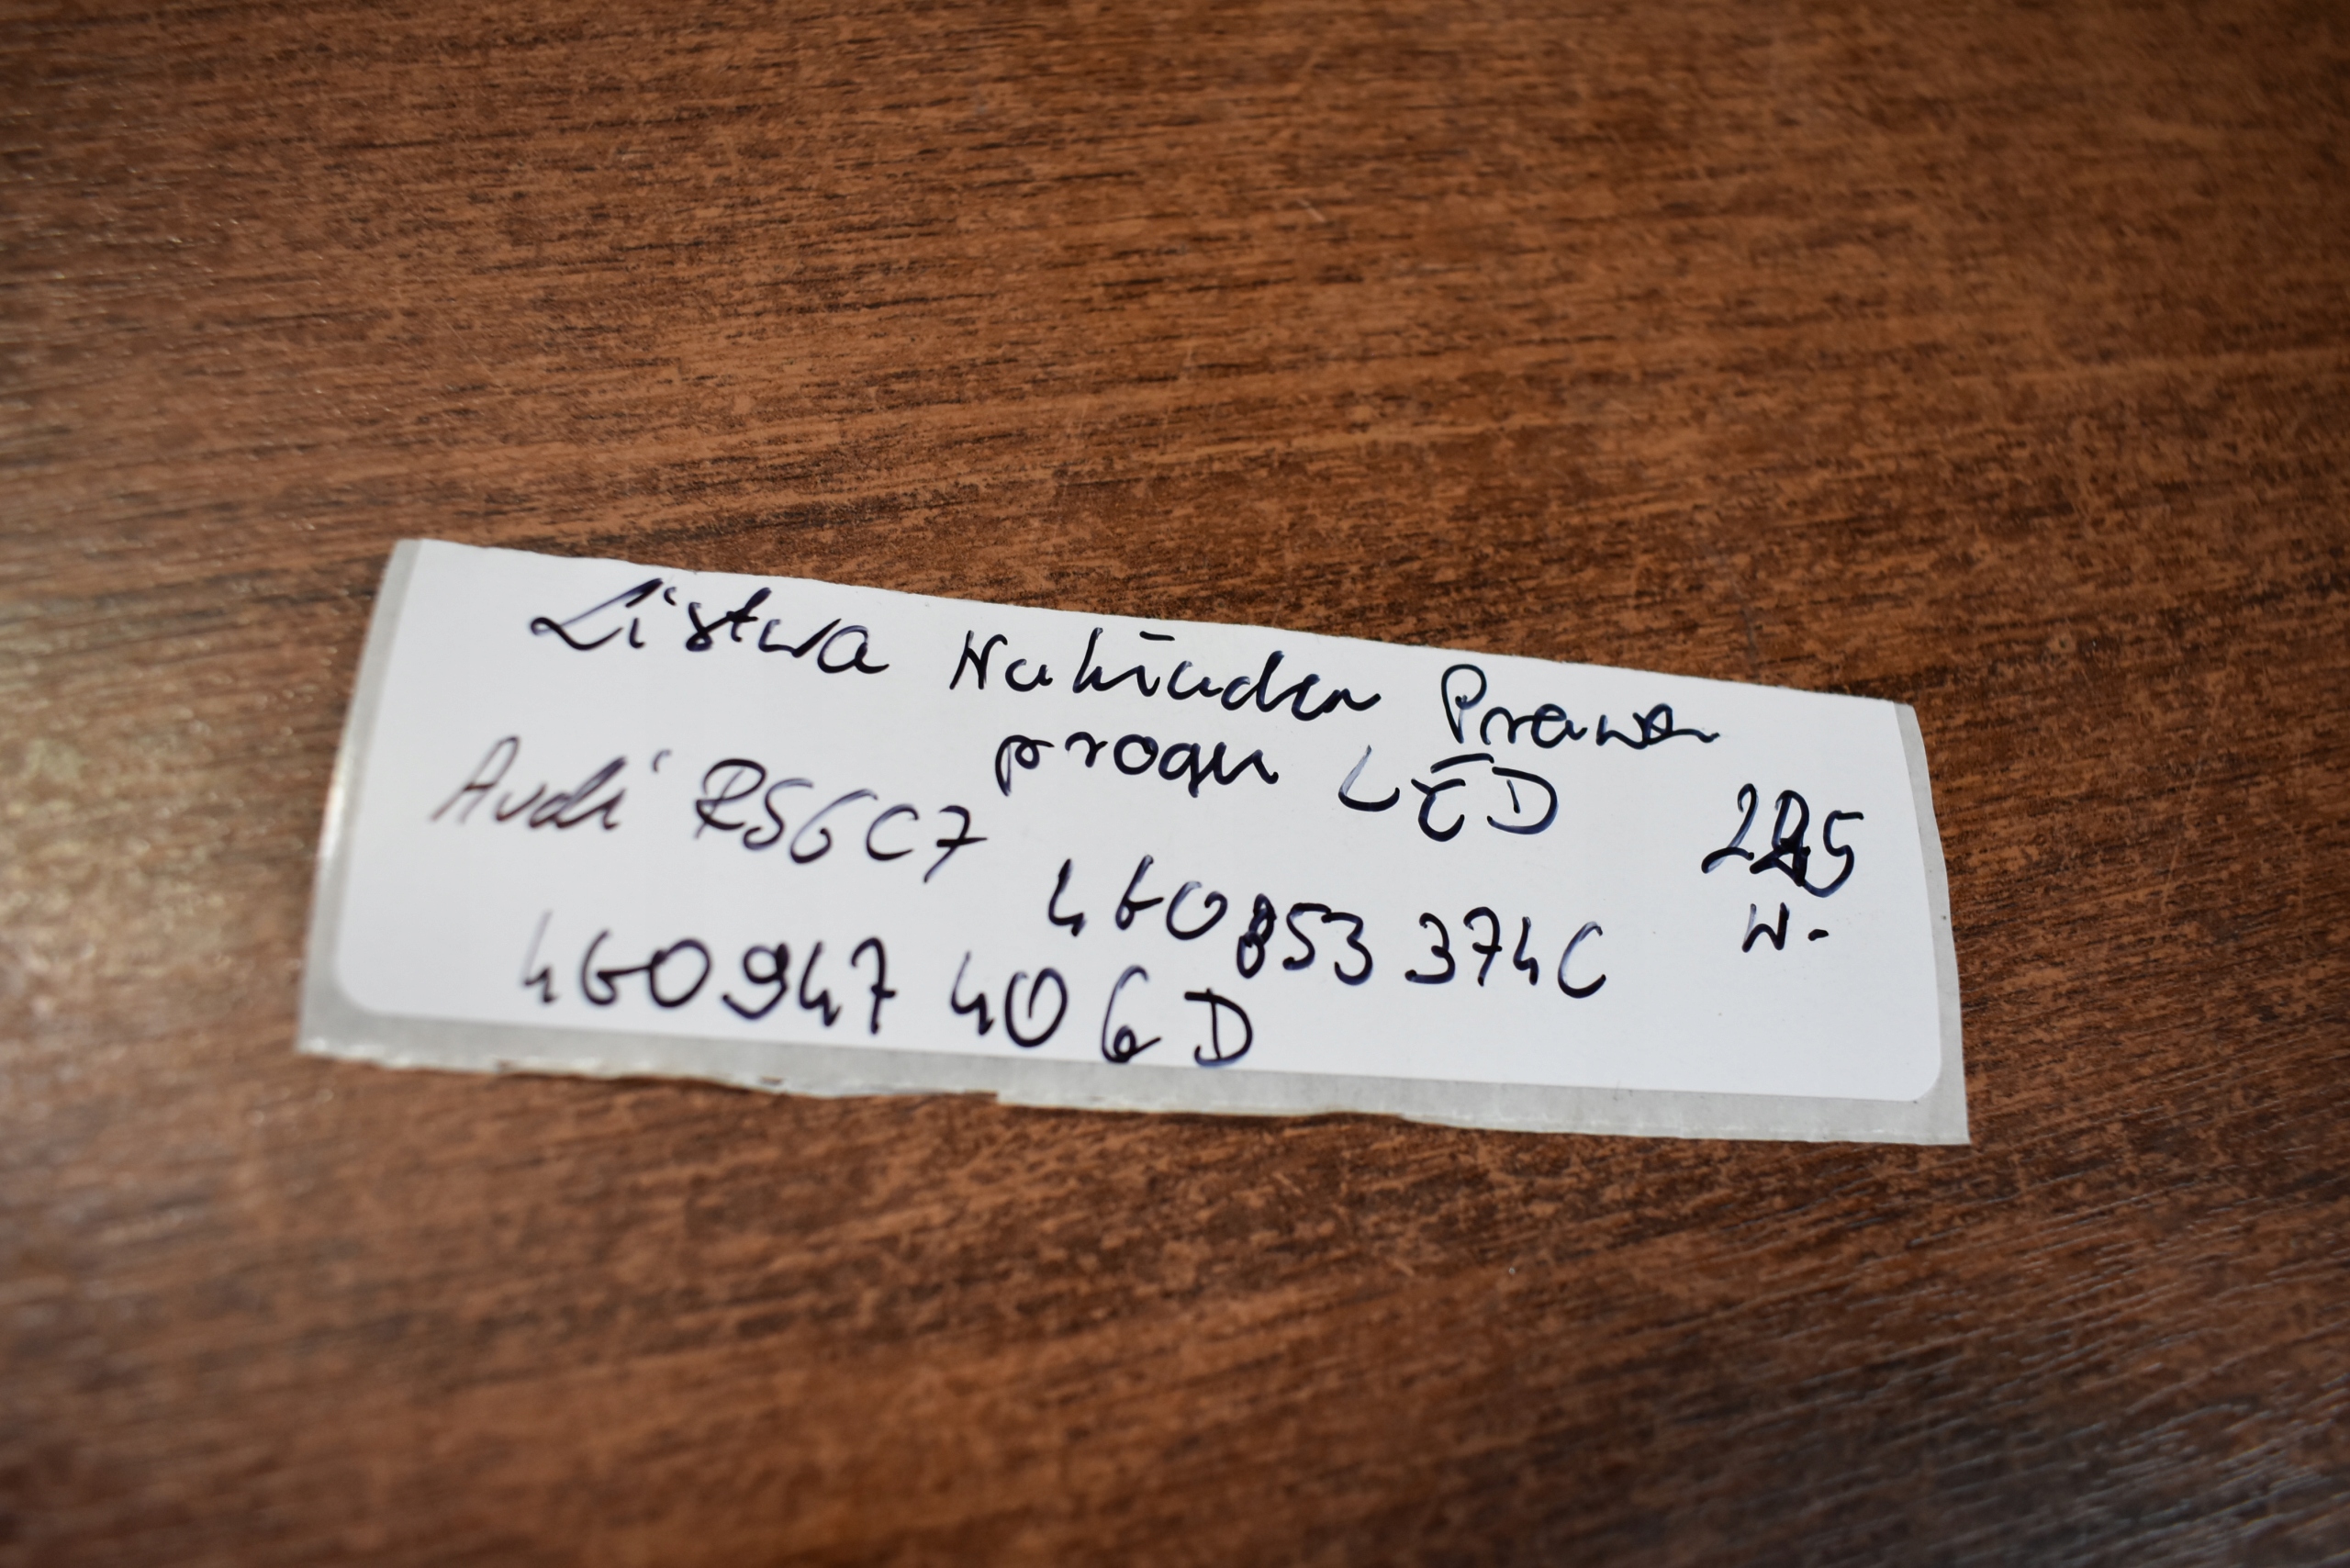 Listwa Nakładka Prawa
progu LED
Audi RS6C7
4G0 853 374C
4G0 947 406D
W-